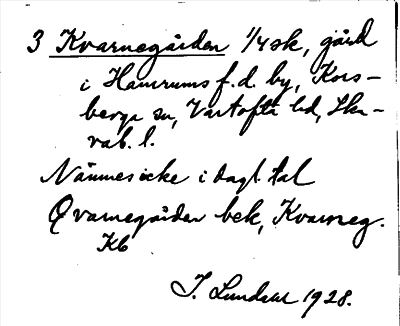 3 Kvarnegården 1/4 sk, gård
i Hamrums f.d. by, Kors-
berga sn, Vartofta hd, Ska-
rab. l.
Nämnes icke i dagl. tal
Qvarnegården bek, Kvarneg.
Kb
J. Lundahl 1928.